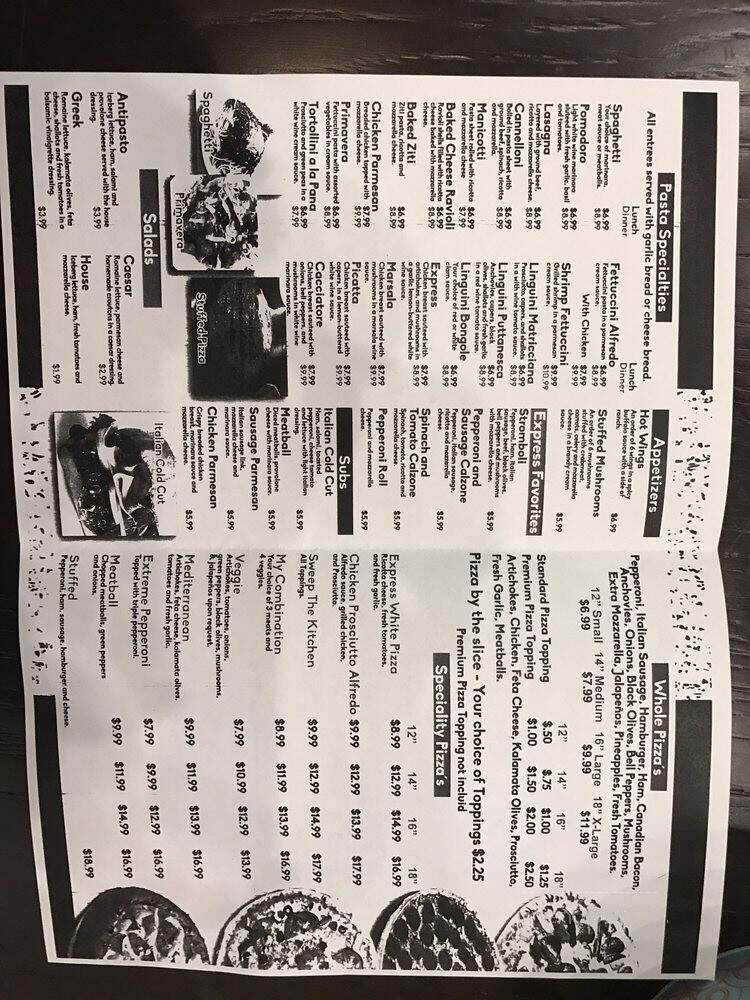 Pasta Specialties
All entrees served with garlic bread or cheese bread.
Lunch
Dinner
Spaghetti $6.99
Your choice of marinara,
meat sauce or meatballs. $8.99
Pomodoro $6.99
Linguini in white marinara
sauteed with fresh garlic, basil $8.99
and tomatoes.
Lasagna $6.99
Layered with ground beef,
ricotta and mozzarella cheese. $8.99
Cannelloni $6.99
Baked pasta sheet with
ground beef, spinach, ricotta $8.99
and mozzarella.
Manicotti $6.99
Pasta sheet rolled with ricotta
and mozzarella cheese. $7.99
Baked Cheese Ravioli $6.99
Ravioli shells filled with ricotta
cheese baked with mozzarella $8.99
cheese.
Baked Ziti $6.99
Ziti pasta, ricotta and
mozzarella cheese. $8.99
Chicken Parmesan $7.99
Breaded chicken topped with
mozzarella cheese. $9.99
Primavera $6.99
Fettuccini pasta with assorted
vegetables in cream sauce. $8.99
Tortollini a la Pana $6.99
Prosciutto and green peas in a
white wine cream sauce. $7.99
Spaghetti
Primavera
Stuffed Pizza
Lunch
Dinner
Fettuccini Alfredo $6.99
Fettuccini pasta in a parmesan
cream sauce. $8.99
With Chicken $7.99
$9.99
Shrimp Fettuccini $9.99
Grilled shrimp in a parmesan
cream sauce. $10.99
Linguini Matricciana $6.99
Prosciutto, capers, and shallots
in a with wine tomato sauce. $8.99
Linguini Puttanesca $6.99
Anchovies, capers, black
olives, shallots and fresh garlic $8.99
in a red wine tomato sauce.
Linguini Bongole $6.99
Your choice of red or white
clam sauce. $8.99
Express $7.99
Chicken breast sauteed with
artichokes, and mushrooms in $8.99
a garlic lemon-buttered white
wine sauce.
Marsala $7.99
Chicken breast sauteed with
mushrooms in a marsala wine $9.99
sauce.
Picatta $7.99
Chicken breast sauteed with
capers, in a lemon-buttered $9.99
white wine sauce.
Cacciatore $7.99
Chicken breast sauteed with
onions, bell peppers, and $9.99
mushrooms in white wine
marinara sauce.
Salads
Antipasto
Iceberg lettuce, ham, salami and
provalone cheese served with the house
dressing. $3.99
Greek
Romaine lettuce, kalamata olives, feta
cheese, shallots and fresh tomatoes in a
balsamic vinaigrette dressing. $3.99
Caesar
Romaine lettuce, parmesan cheese and
homemade croutons in a caesar dressing. $2.99
House
Iceberg lettuce, ham, fresh tomatoes and
mozzarella cheese. $1.99
Appetizers
Hot Wings
An order of 6 wings in a spicy
buffalo sauce with a side of
ranch. $6.99
Stuffed Mushrooms
An order of 6 mushrooms
stuffed with crabmeat,
carrots, celery and mozzarella
cheese in a brandy cream
sauce. $5.99
Express Favorites
Stromboli
Pepperoni, ham, italian
sausage, beef, black olives,
bell peppers and mushrooms
with mozzarella cheese. $5.99
Pepperoni and
Sausage Calzone
Pepperoni, italian sausage,
ricotta and mozzarella
cheese. $5.99
Spinach and
Tomato Calzone
Spinach, tomato, ricotta and
mozzarella cheese. $5.99
Pepperoni Roll
Pepperoni and mozzarella
cheese. $5.99
Subs
Italian Cold Cut
Ham, salami, toasted
pepperoni, cheese, tomato
and lettuce with light italian
dressing. $5.99
Meatball
Diced meatballs, provalone
cheese with marinara sauce. $5.99
Sausage Parmesan
Italian sausage link,
mozzarella cheese and
marinara sauce. $5.99
Chicken Parmesan
Crispy breaded chicken
breast, marinara sauce and
mozzarella cheese. $5.99
Italian Cold Cut
Whole Pizza's
Pepperoni, Italian Sausage, Hamburger, Ham, Canadian Bacon,
Anchovies, Onions, Black Olives, Bell Peppers, Mushrooms,
Extra Mozzarella, Jalapeños, Pineapples, Fresh Tomatoes.
12" Small 14" Medium 16" Large 18" X-Large
$6.99 $7.99 $9.99 $11.99
12" 14" 16" 18"
Standard Pizza Topping $.50 $.75 $1.00 $1.25
Premium Pizza Topping $1.00 $1.50 $2.00 $2.50
Artichokes, Chicken, Feta Cheese, Kalamata Olives, Prosciutto,
Fresh Garlic, Meatballs.
Pizza by the slice - Your choice of Toppings $2.25
Premium Pizza Topping not includ
Speciality Pizza's
12" 14" 16" 18"
Express White Pizza $8.99 $12.99 $14.99 $16.99
Ricotta cheese, fresh tomatoes,
and fresh garlic.
Chicken Prosciutto Alfredo $9.99 $12.99 $13.99 $17.99
Alfredo sauce, grilled chicken,
and Prosciutto.
Sweep The Kitchen $9.99 $12.99 $14.99 $17.99
All Toppings.
My Combination $8.99 $11.99 $13.99 $16.99
Your choice of 3 meats and
4 veggies.
Veggie $7.99 $10.99 $12.99 $13.99
Artichokes, tomatoes, onions,
green peppers, black olives, mushrooms,
& jalapeños upon request.
Mediterranean $9.99 $11.99 $13.99 $16.99
Artichokes, feta cheese, kalamata olives,
tomatoes and fresh garlic.
Extreme Pepperoni $7.99 $9.99 $12.99 $16.99
Topped with triple pepperoni.
Meatball $9.99 $11.99 $14.99 $16.99
Chopped meatballs, green peppers
and onions.
Stuffed $18.99
Pepperoni, ham, sausage, hamburger and cheese.